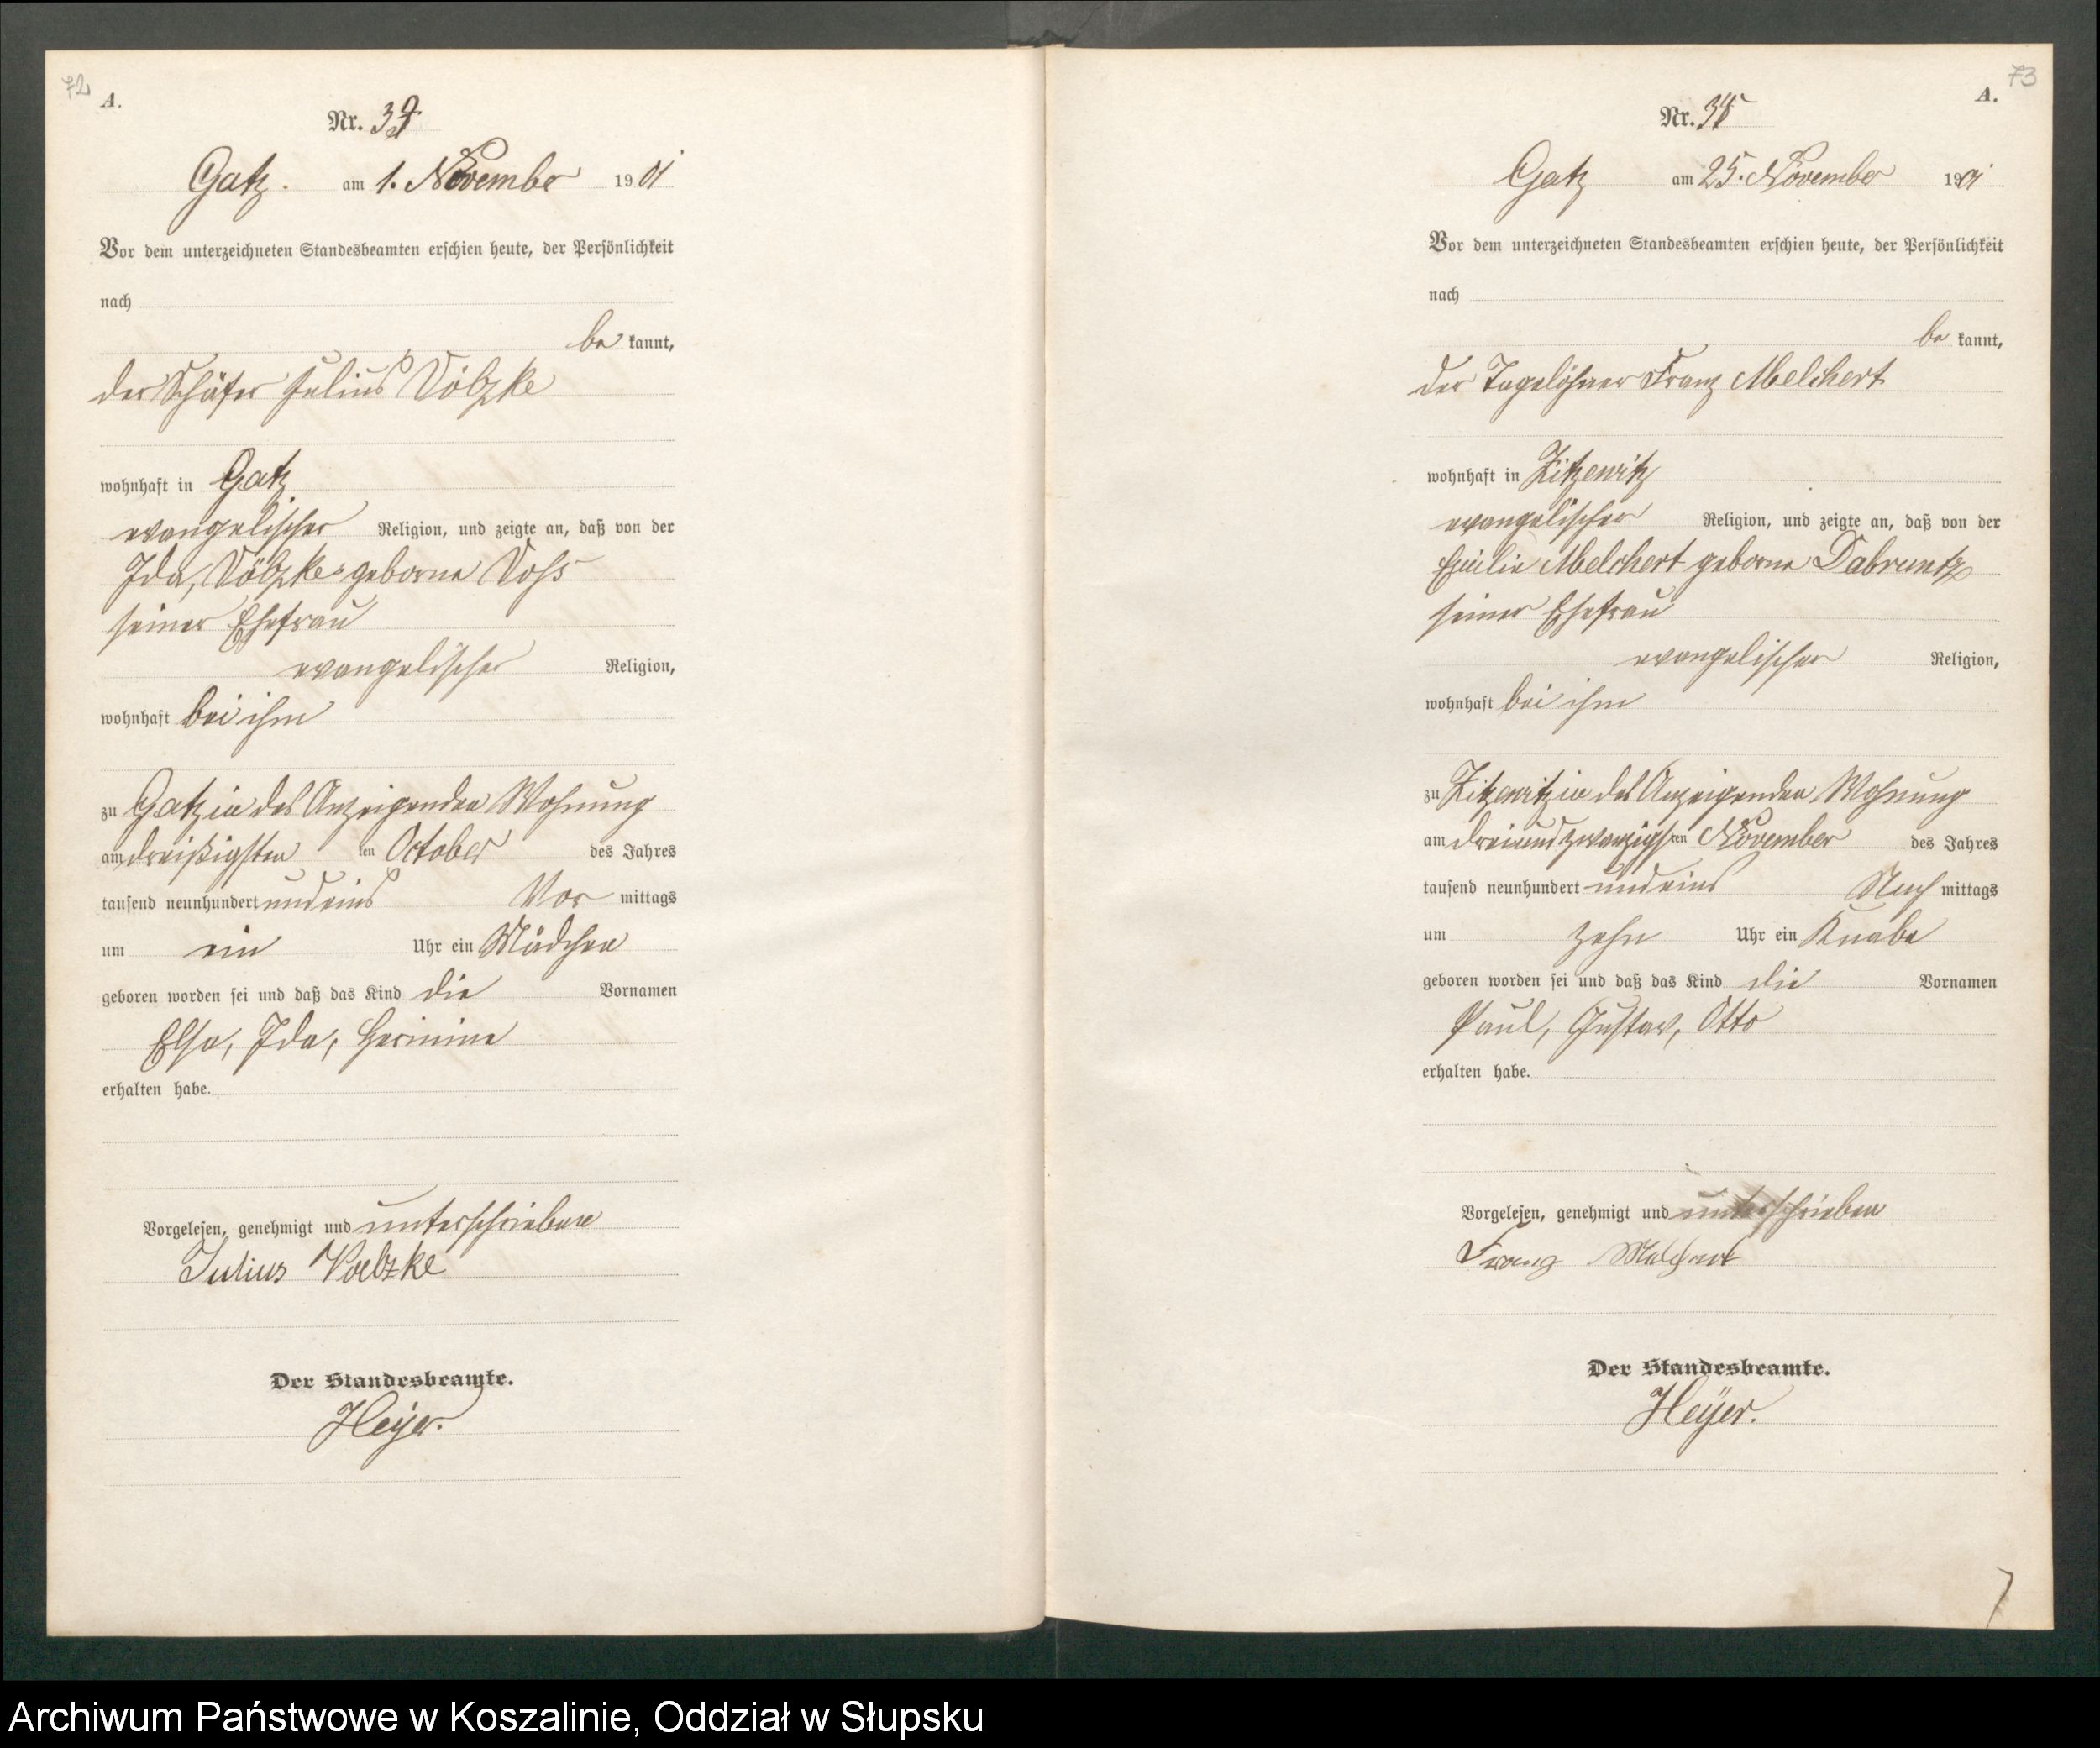 72
A.
Nr. 37
Gatz. am 1. November 1901
Vor dem unterzeichneten Standesbeamten erschien heute, der Persönlichkeit
nach
be kannt,
der Schäfer Julius Völzke
wohnhaft in Gatz
evangelischer Religion, und zeigte an, daß von der
Ida, Völzke geborne Voss
seiner Ehefrau
evangelischer Religion,
wohnhaft bei ihm
zu Gatz in des Anzeigenden Wohnung
am dreißigsten ten October des Jahres
tausend neunhundert und eins Vor mittags
um ein Uhr ein Mädchen
geboren worden sei und daß das Kind die Vornamen
Elsa, Ida, Hermine
erhalten habe.
Vorgelesen, genehmigt und unterschrieben
Julius Voelzke
Der Standesbeamte.
Heyer.
73
A.
Nr. 38
Gatz am 25. November 1901
Vor dem unterzeichneten Standesbeamten erschien heute, der Persönlichkeit
nach
be kannt,
der Tagelöhner Franz Melchert
wohnhaft in Zitzewitz
evangelischer Religion, und zeigte an, daß von der
Melchert geborne
seiner Ehefrau
evangelischer Religion,
wohnhaft bei ihm
zu Zitzewitz in des Anzeigenden Wohnung
am dreiundzwanzigsten November des Jahres
tausend neunhundert und eins Nach mittags
um zehn Uhr ein Knabe
geboren worden sei und daß das Kind die Vornamen
Paul, Gustav, Otto
erhalten habe.
Vorgelesen, genehmigt und unterschrieben
Franz Melchert
Der Standesbeamte.
Heyer.
Archiwum Państwowe w Koszalinie, Oddział w Słupsku